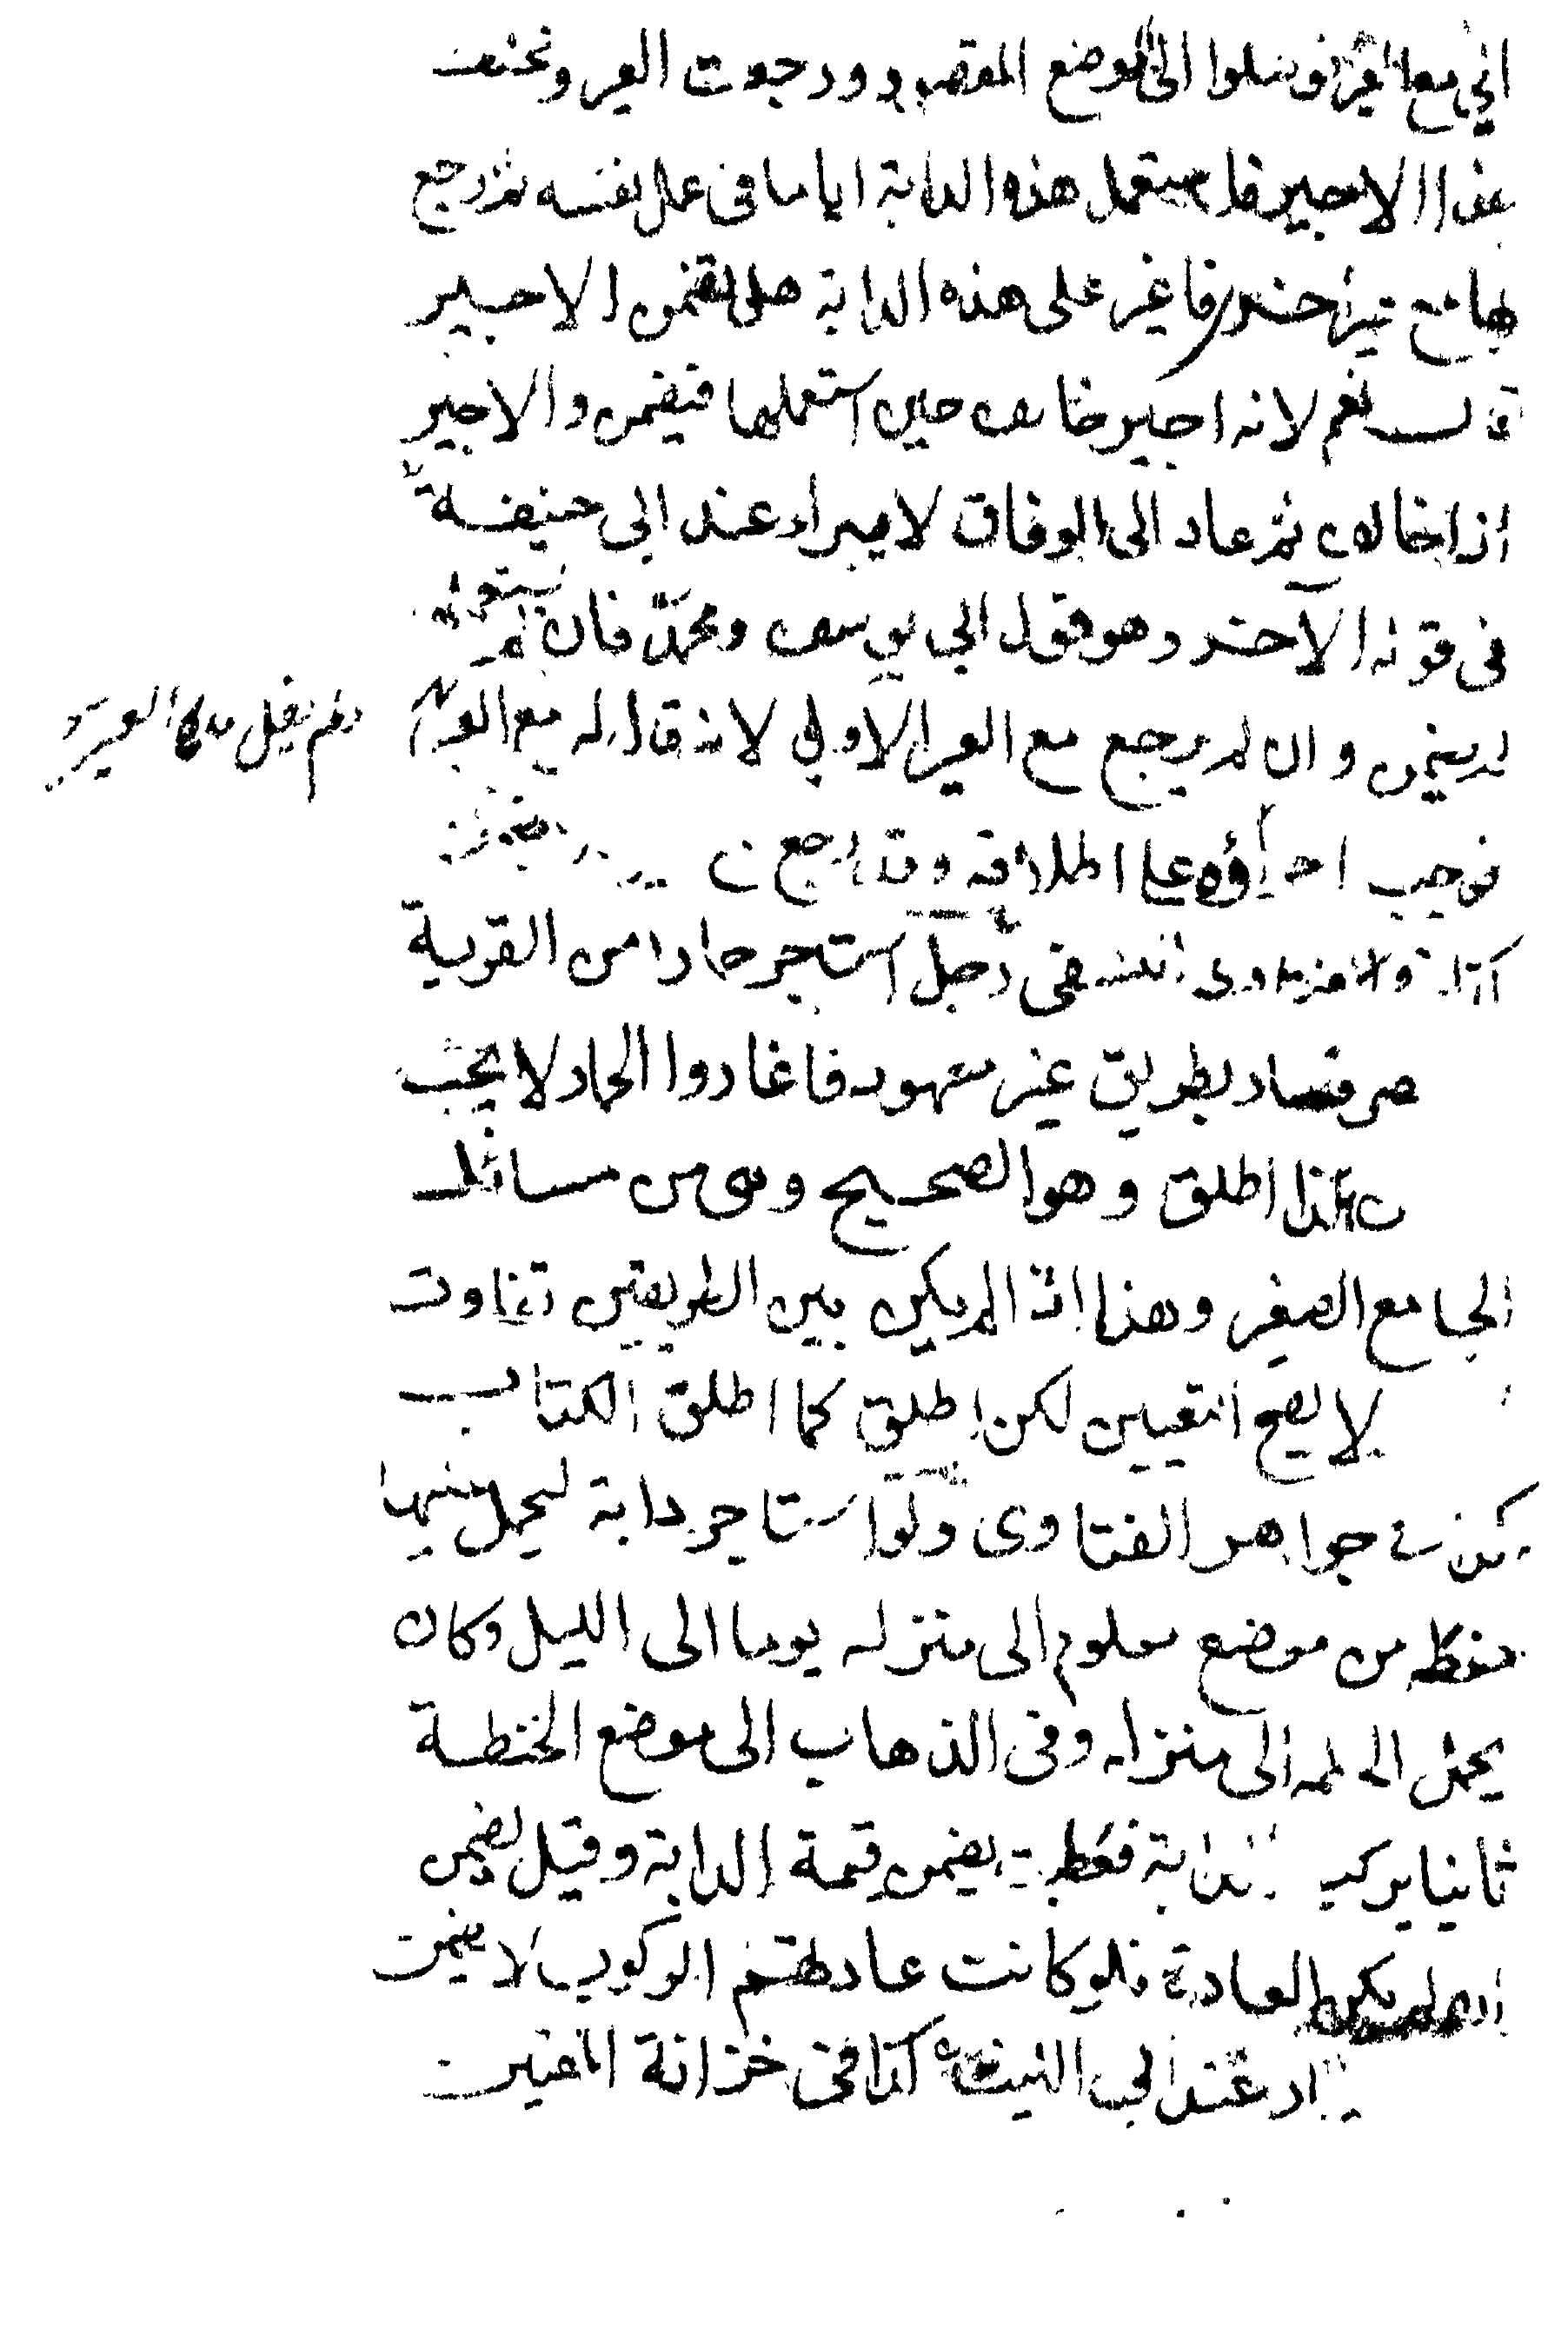 الى مع العير فوصلوا الى الموضع المقصود ورجعت العير وتخلف
هذا الاجير فاستعمل هذه الدابة اياما فى عمل نفسه ثم رجع
بها مع عير اخر فاغير على هذه الدابة هل يضمن الاجير
قال نعم لانه اجير خالف حين استعملها فيضمن والاجير
اذا خالف ثم عاد الى الوفاق لا يبراء عند ابى حنيفة
فى قوله الآخر وهو قول ابى يوسف ومحمد فان لم يستعمله
لم يضمن وان لم يرجع مع العير الاولى لانه قال له مع العير
ولم يقل مع هذا العير
فوجب اجراؤه على اطلاقه وقد رجع
فى رجل استاجر حمارا من القرية
فسار بطريق غير معهود فاغاروا الحمار لا يجب
هكذا اطلق وهو الصحيح وهى من مسائل
الجامع الصغير وهذا اذا لم يكن بين الطريقين تفاوت
لا يصح التعيين لكن اطلق كما اطلق الكتاب
كذا فى جواهر الفتاوى ولو استاجر دابة ليحمل عليها
حنطة من موضع معلوم الى منزله يوما الى الليل وكان
يحمل الحنطة الى منزله وفى الذهاب الى موضع الحنطة
ثانيا يركب الدابة فعطبت يضمن قيمة الدابة وقيل يضمن
ان لم يكن العادة فلو كانت عادتهم الركوب لا يضمن
عند ابى الليث كذا فى خزانة المفتين